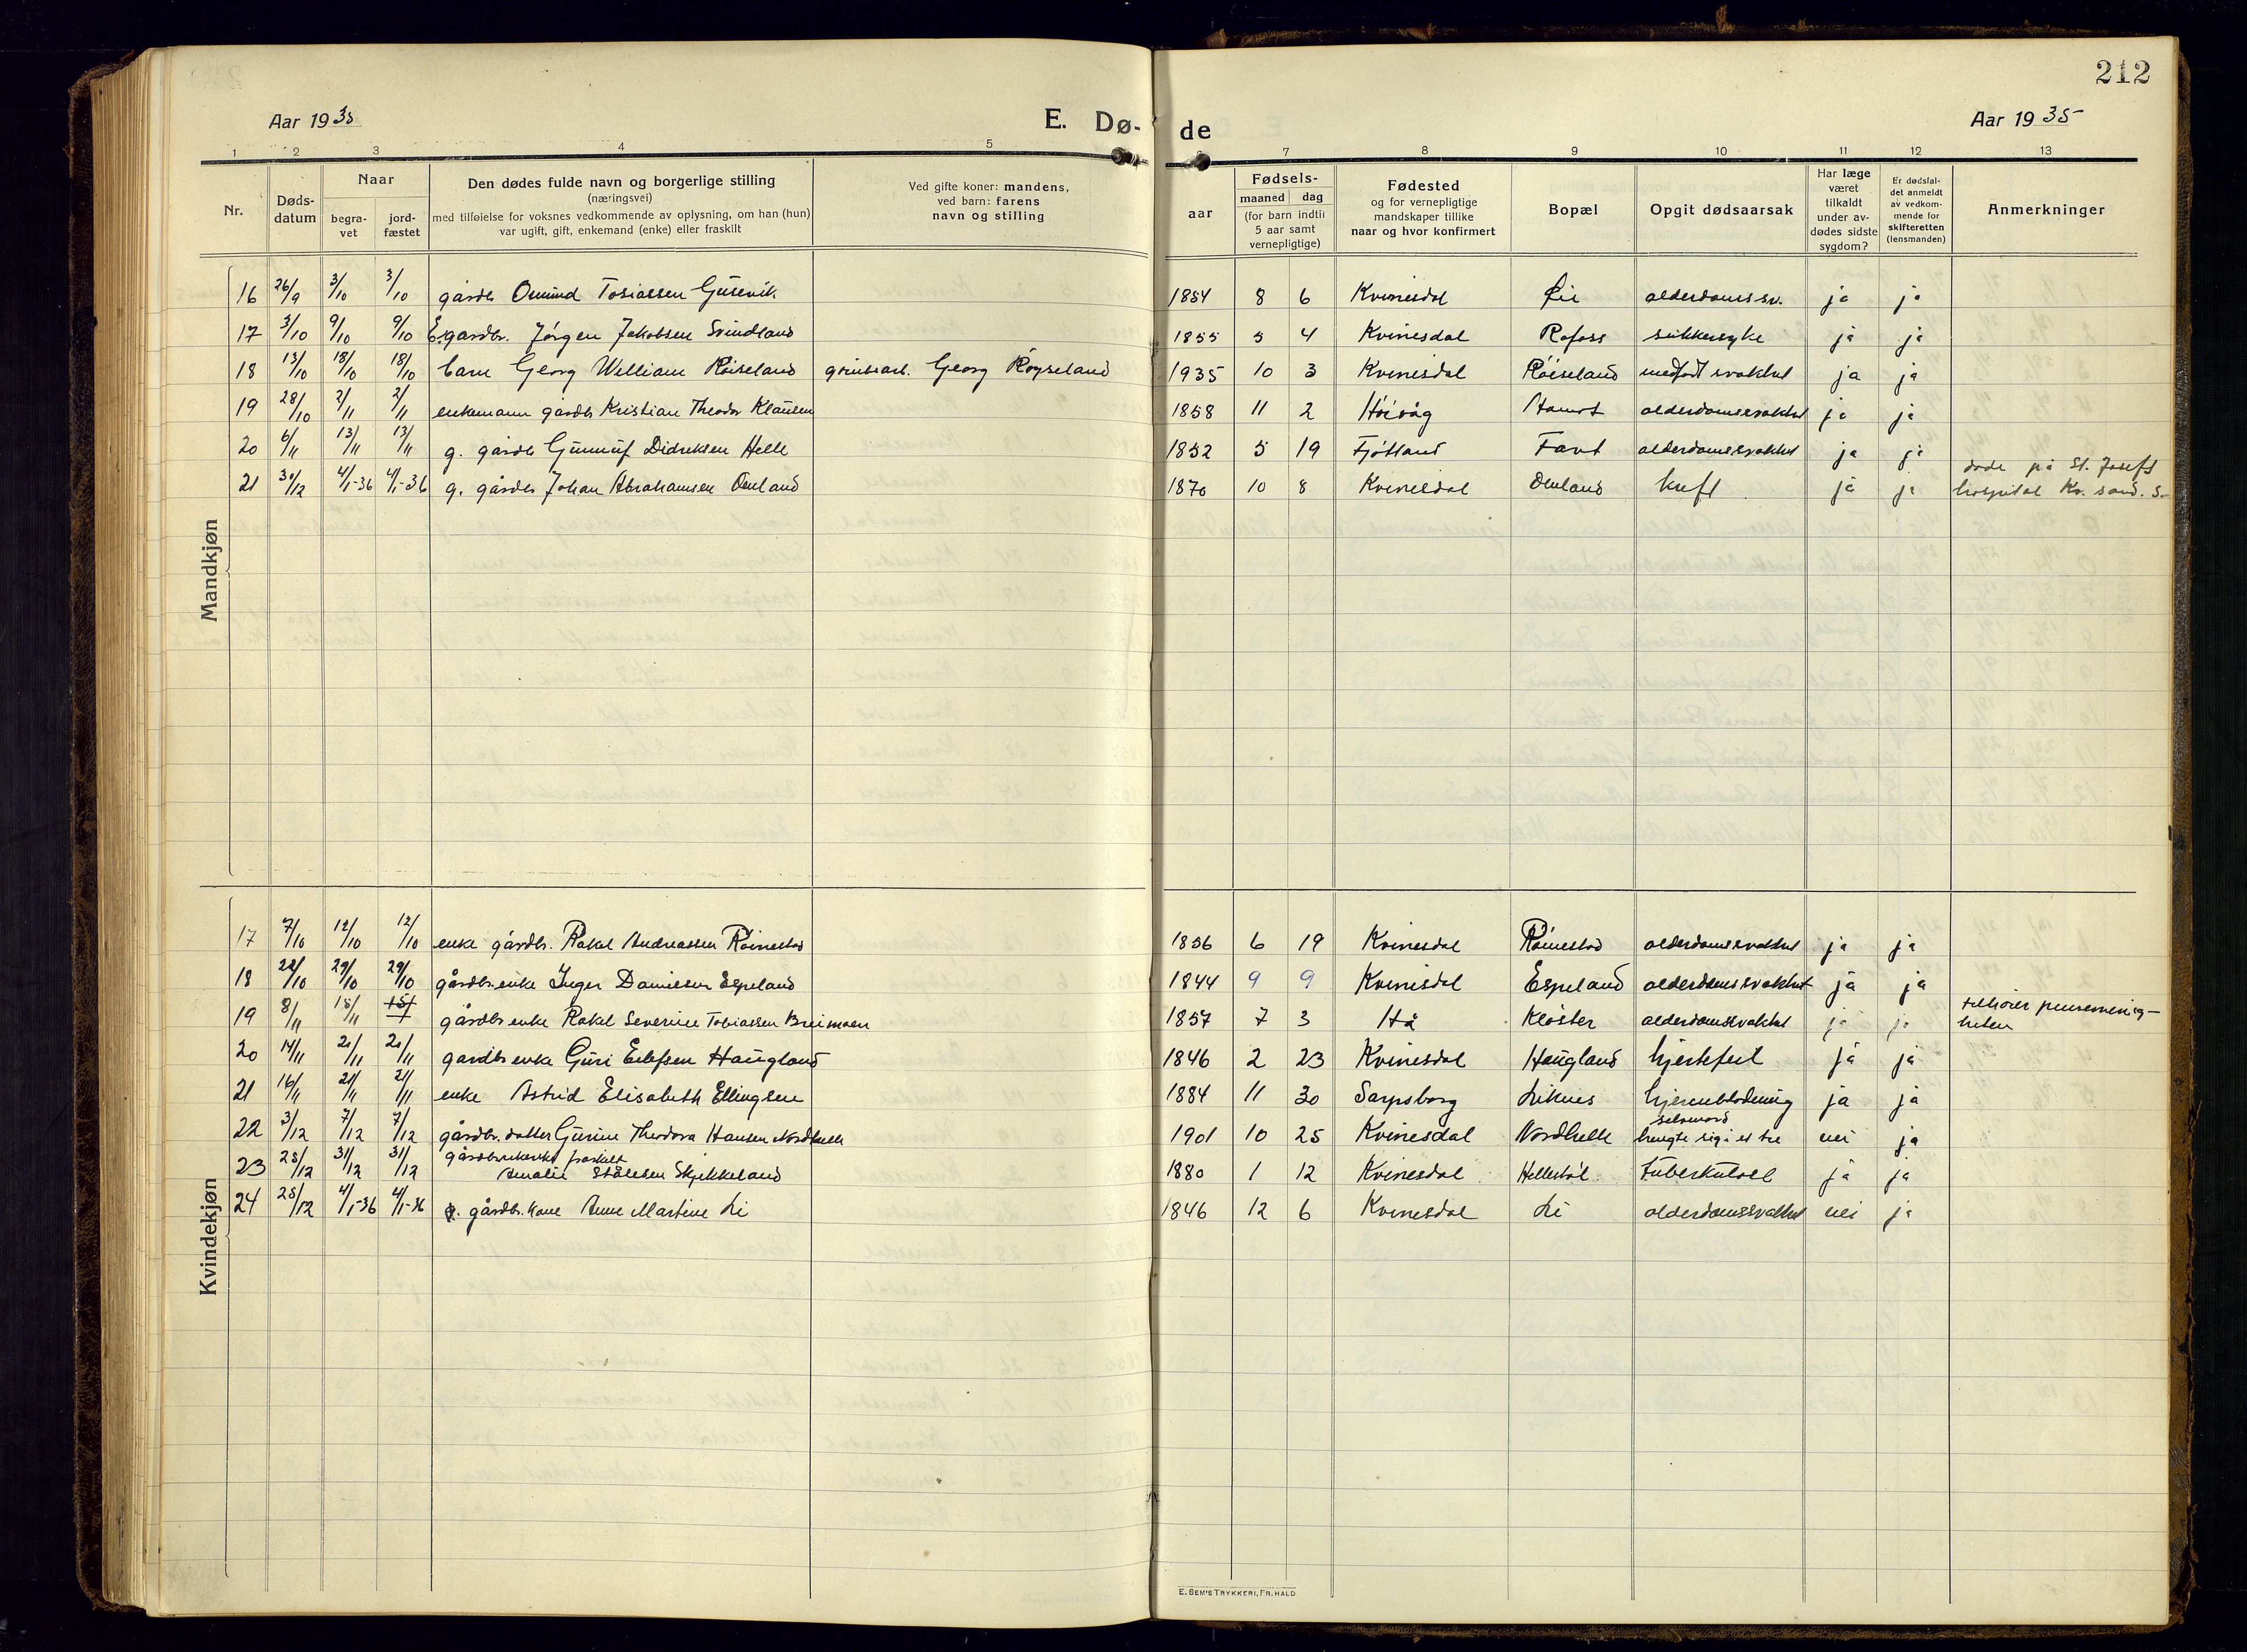 212
Aar 1935 E. Dø- de Aar 1935
1 2 3 4 5 6 7 8 9 10 11 12 13
Nr. Døds-datum Naar begra-vet jord-fæstet Den dødes fulde navn og borgerlige stilling (næringsvei) med tilføielse for voksnes vedkommende av oplysning, om han (hun) var ugift, gift, enkemand (enke) eller fraskilt Ved gifte koner: mandens, ved barn: farens navn og stilling Fødsels- aar maaned dag (for barn indtil 5 aar samt vernepligtige) Fødested og for vernepligtige mandskaper tillike naar og hvor konfirmert Bopæl Opgit dødsaarsak Har læge været tilkaldt under av-dødes sidste sygdom? Er dødsfal-det anmeldt av vedkom-mende for skifteretten (lensmanden) Anmerkninger
Mandkjøn
16 26/9 3/10 3/10 gårdb Osmund Tosiassen Gusevik 1854 8 6 Kvinesdal Øie alderdomssv. ja ja
17 3/10 9/10 9/10 E. gardbr. Jørgen Jakobsen Svindland 1855 5 4 Kvinesdal Rafoss sukkersyke ja ja
18 13/10 18/10 18/10 barn Georg William Røiseland grubearb. Georg Røyseland 1935 10 3 Kvinesdal Røiseland medfødt svakhet ja ja
19 28/10 2/11 2/11 enkemann gårdb Kristian Theodor Klausen 1858 11 2 Høivåg Hamst alderdomssvakhet ja ja
20 6/11 13/11 13/11 g. gårdb Gunnuf Didriksen Helle 1852 5 19 Fjotland alderdomssvakhet ja ja
21 30/12 4/1-36 4/1-36 g. gårdb Johan Abrahamsen Omland 1870 10 8 Kvinesdal Omland kreft ja ja døde på St. Josefs
hospital Kr.sand. S.
Kvindekjøn
17 7/10 12/10 12/10 enke gårdbr. Rakel Andreassen Røinestad 1856 6 19 Kvinesdal Røinestad alderdomssvakhet ja ja
18 22/10 29/10 29/10 gårdbr.enke Inger Danielsen Espeland 1844 9 9 Kvinesdal Espeland alderdomssvakhet ja ja
19 8/11 15/11 15/ gårdbr enke Rakel Severine Tobiassen Breimoen 1857 7 3 Hå Kloster alderdomssvakhet ja ja tilhører pinsemenig-
heten
20 14/11 21/11 21/11 gardbr enke Guri Eilefsen Haugland 1846 2 23 Kvinesdal Haugland hjertefeil ja ja
21 16/11 21/11 21/11 enke Astrid Elisabeth Ellingsen 1884 11 30 Sarpsborg Liknes hjerneblødning ja ja
22 3/12 7/12 7/12 gårdbr. datter Gurine Theodora Hansen Nordhelle 1901 10 25 Kvinesdal Nordhelle selvmord
hengte sig i et tre nei ja
23 25/12 31/12 31/12 fraskilt
Amalie Stålesen Skjekkeland 1880 1 12 Kvinesdal Hellestøl Tuberkulose ja ja
24 25/12 4/1-36 4/1-36 g. gårdbr. kone Anne Martine Li 1846 12 6 Kvinesdal Li alderdomssvakhet nei ja
E. SEM'S TRYKKERI, FR.HALD